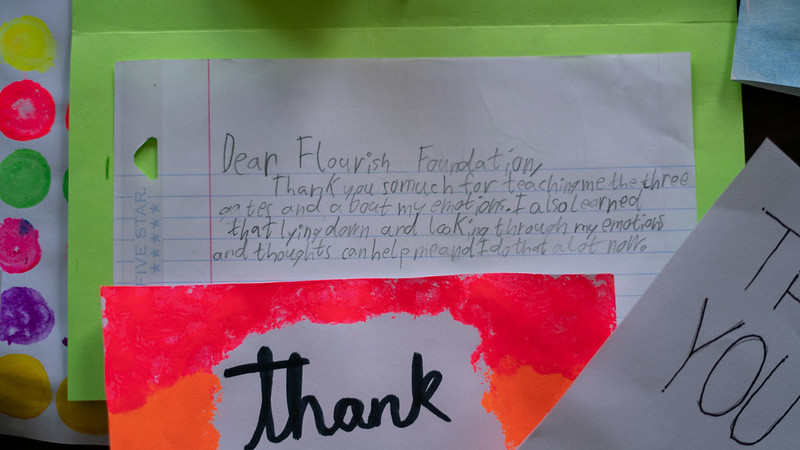 Dear Flourish Foundation,
Thank you so much for teaching me the three
gates and about my emotions. I also learned
that lying down and looking through my emotions
and thoughts can help me and I do that alot now.
FIVE STAR.
thank
TH
YOU